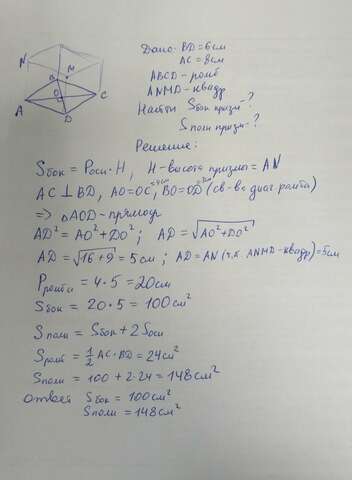 N
M
B
O
A
C
D
Дано: BD = 6 см
AC = 8 см
ABCD - ромб
ANMD - квадр
Найти Sбок призм - ?
Sполн призм - ?
Решение:
Sбок = Pосн · H, H - высота призмы = AN
AC ⊥ BD, AO = OC = 4см, BO = OD = 3см (св-во диаг. ромба)
=> △AOD - прямоуг
AD² = AO² + DO²; AD = √AO² + DO²
AD = √16 + 9 = 5 см; AD = AN (т.к. ANMD - квадр) = 5 см
Pромба = 4 · 5 = 20 см
Sбок = 20 · 5 = 100 см²
Sполн = Sбок + 2 Sосн
Sромб = 1/2 AC · BD = 24 см²
Sполн = 100 + 2 · 24 = 148 см²
Ответ Sбок = 100 см²
Sполн = 148 см²